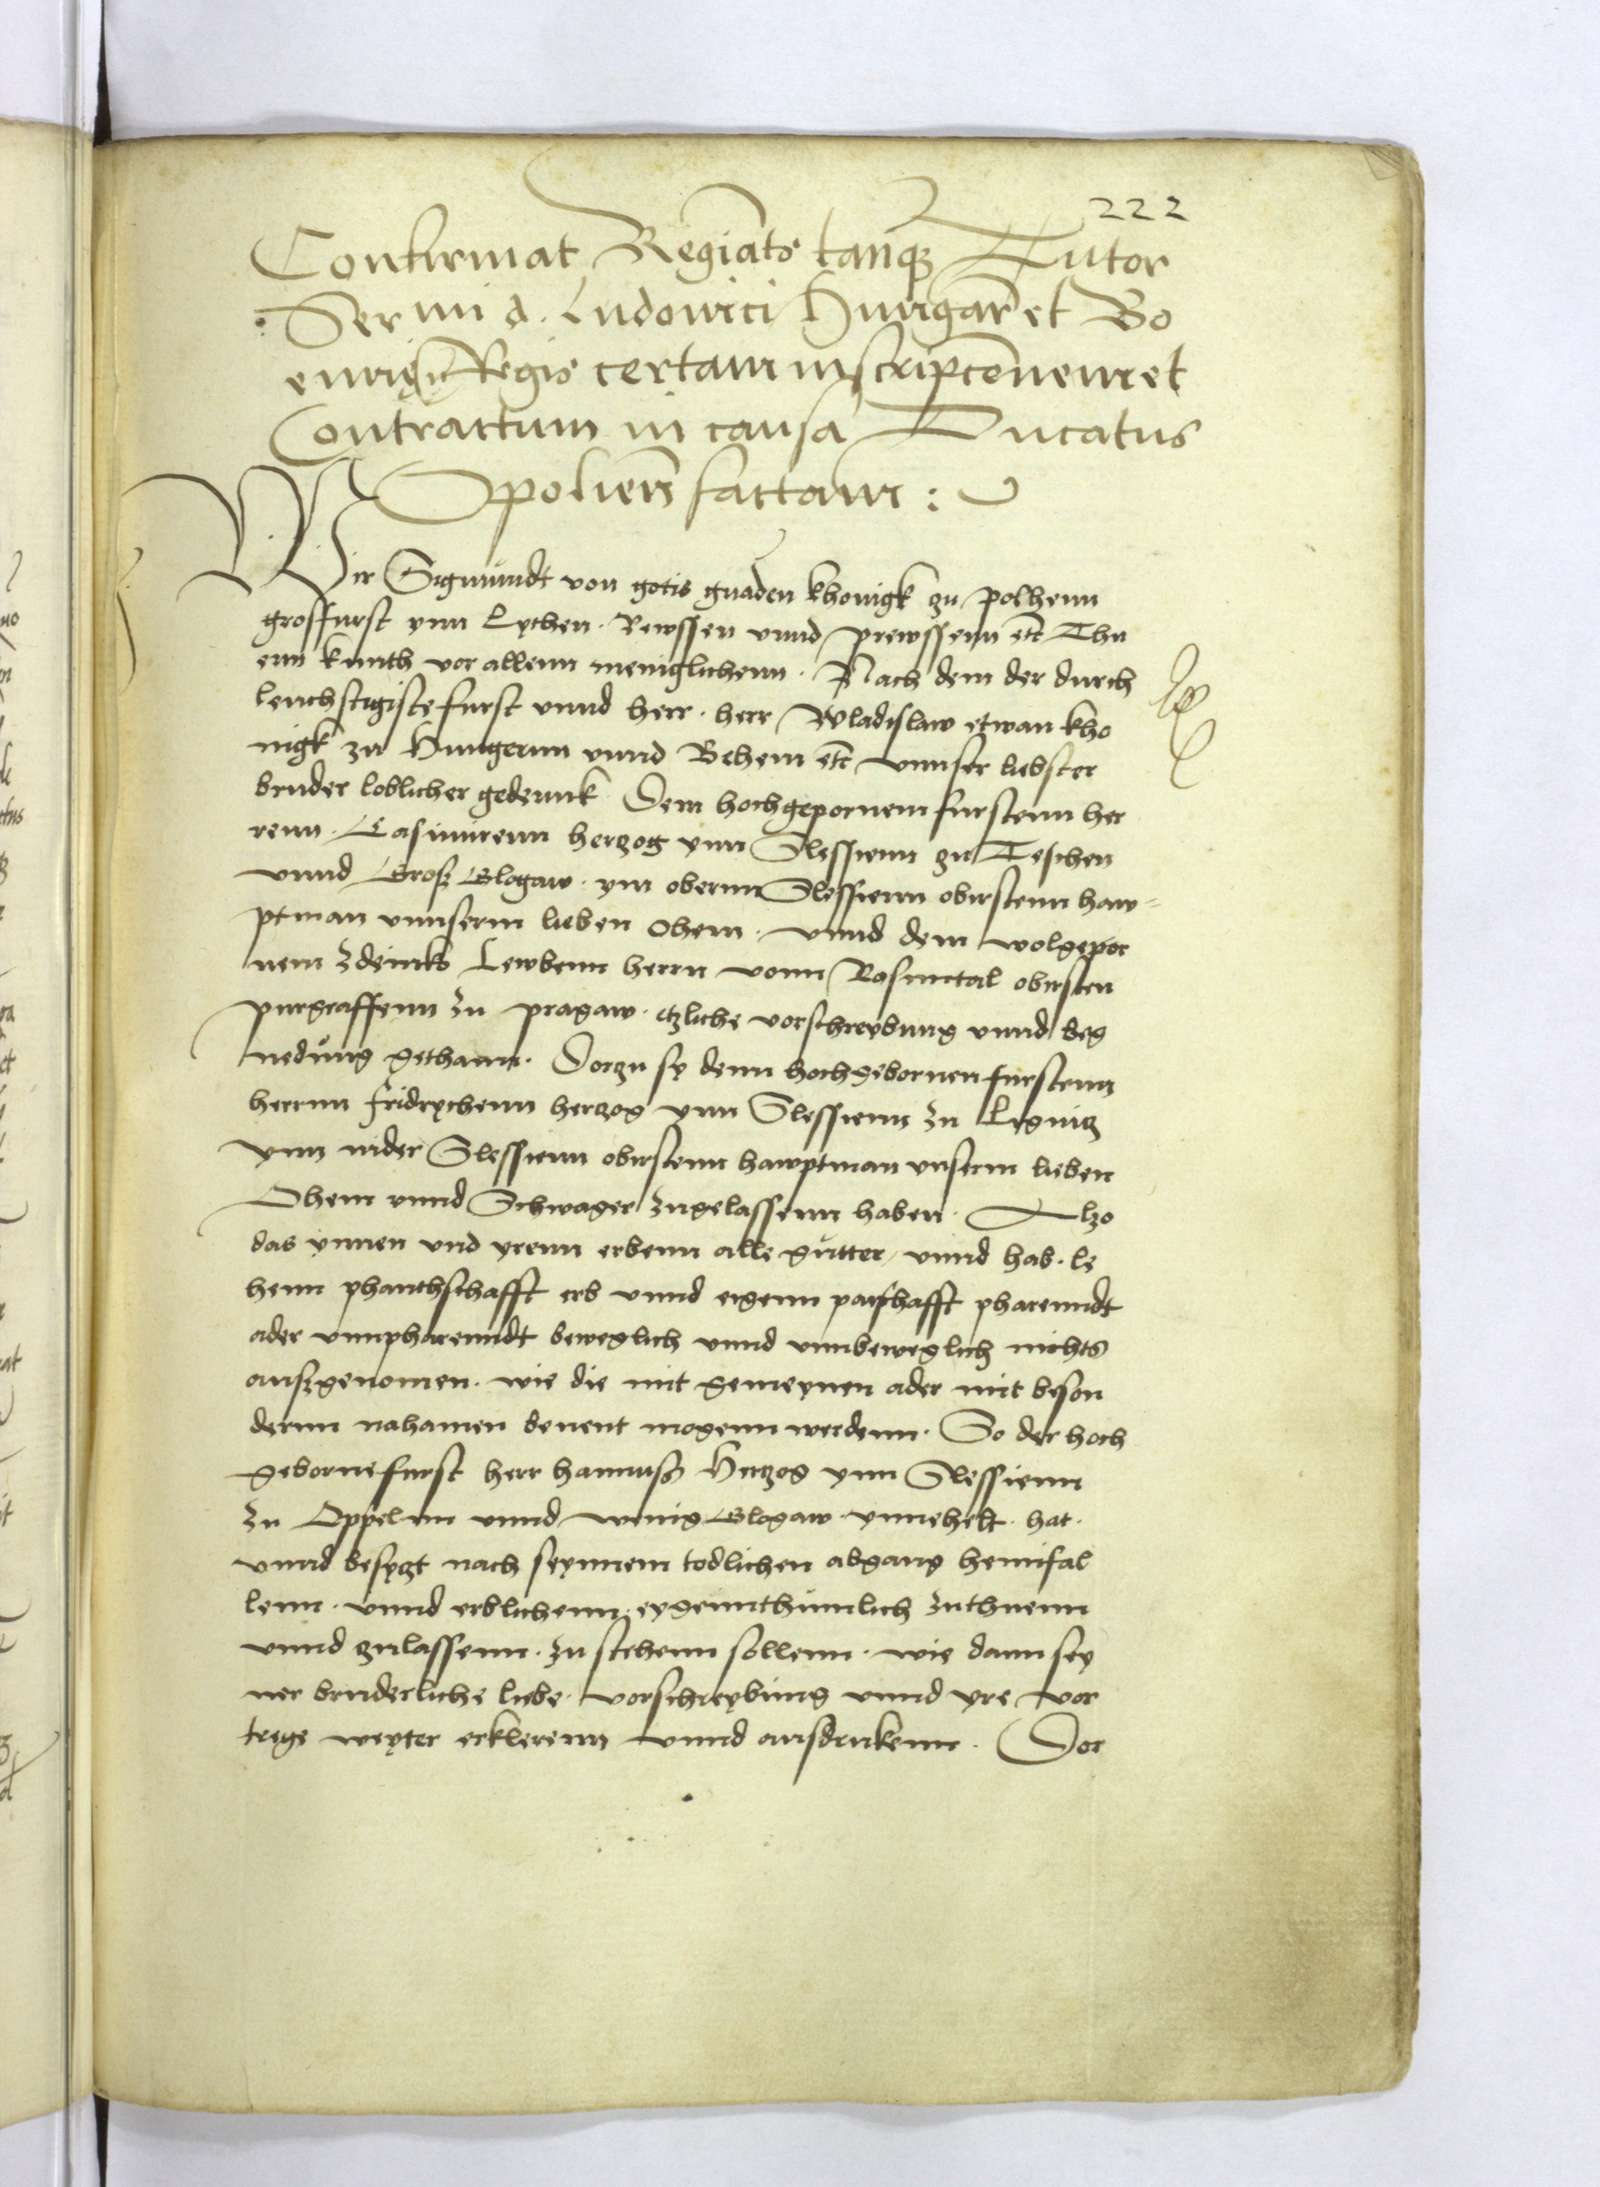 222
Confirmat Regia mts tanq Tutor
Sermi d. Ludovici Hungar et Bo
emiq Regis certam inscripconem et
Contractum in causa Ducatus
Opolien factam :
Wir Sigmundt von gotis gnaden khonigk zu polhenn
grosfurst ynn Lythen. Rewssen vnnd prewssenn etc Thu
enn kunth vor allenn meniglichenn. Nach dem der durch
leuchstigiste furst vnnd herr. herr Wladislaw etwan kho
nigk zu Hungernn vnnd Behem etc vnnser liebster
bruder loblicher gedennk Dem hochgepornem furstenn her
renn. Casimirenn herzog ynn Slessienn zu Teschen
vnnd Grosz Glogaw. ym obernn Slessienn obirstenn haw=
ptman vnnserm lieben Ohem. vnnd dem wolgepor
nem Zdenko Lewbenn herrn vonn Rosmital obirsten
purgraffenn zu pragaw. etzliche vorschreybung vnnd beg
nedung gethann. Dorzu sy denn hochgebornen furstenn
herrnn fridrychenn herzog ynn Slessienn zu Legnitz
ynn nider Slessienn obirstenn hawptman vnserm lieben
Ohem vnnd Schwager zugelassenn haben. Alzo
das ynnen vnd yrenn erbenn alle gutter, vnnd hab. le
henn phanthschafft erb vnnd eigenn parschafft pharenndt
ader vnnpharenndt beweglich vnnd vnnbeweglich nichts
auszgenomen. wie die mit gemeynen ader mit beson
dernn nahamen benent mogenn werdenn. So der hoch
geborne furst herr hannusz Hertzog ynn Slessienn
zu Oppeln vnnd wenig Glogaw. ynnehelt. hat.
vnnd besytzt nach seynnem todlichen abgang hemifal
lenn. vnnd erblichenn. eygennthumlich zuthuenn
vnnd zulassenn. zu stehenn sollenn. wie dann sey
ner bruderliche liebe. vorschreybung vnnd yre vor
trege weyter erklerenn vnnd ausdrukenn. Dor